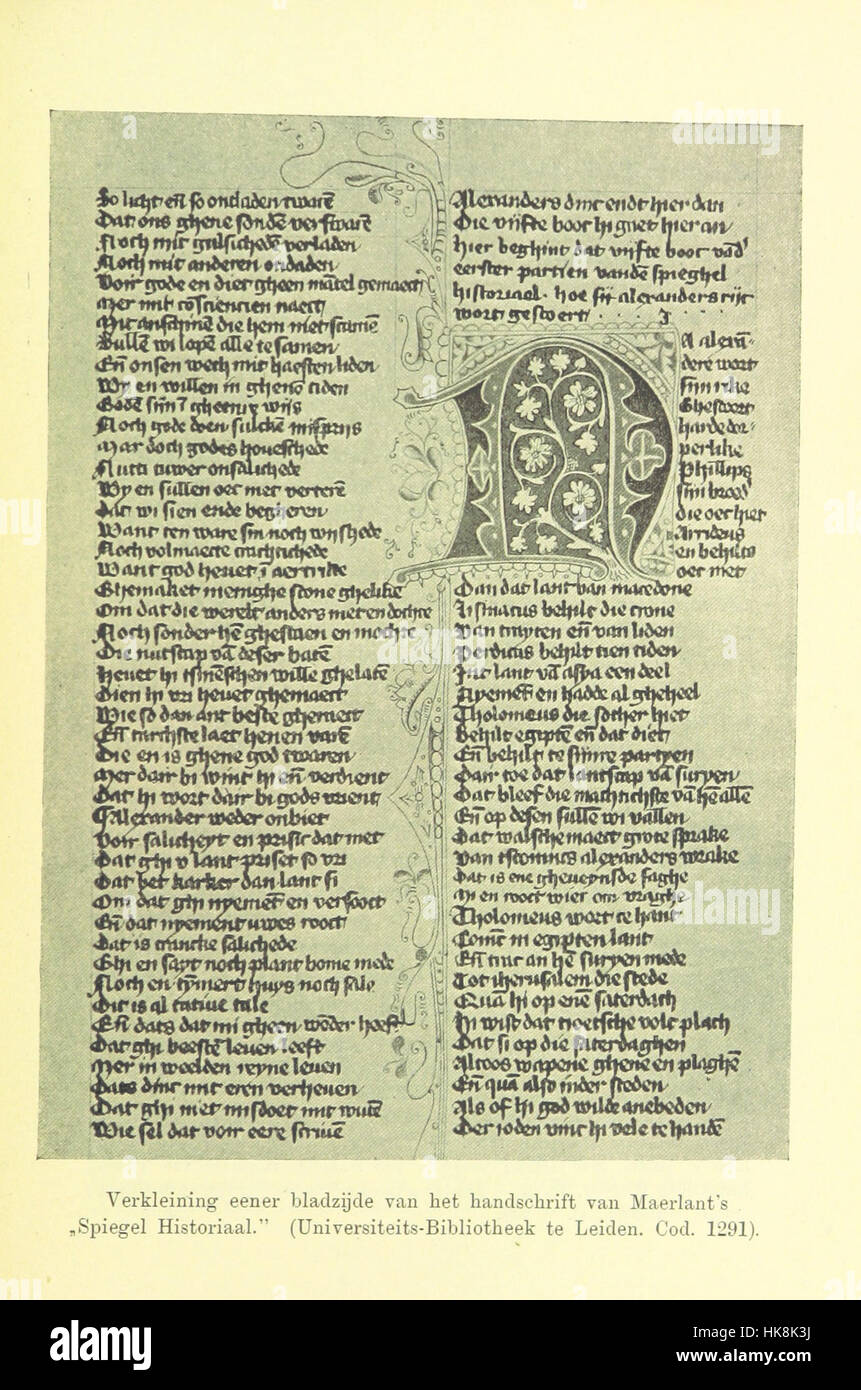 So licht eñ so ondaden twarē
Dat ons ghene sondē verswarē
Noch mit gulsichedē verladen
Noch mit anderen ondaden
Voir gode en dier gheen mātel gemaect
Mer mit consciencien naect
die hem niet scamē
Sullē wi lopē alle te samen
Eñ onsen wech mit haesten liden
Wy en willen in ghenē tiden
Noch gode doen sulckē mispriis
Mar doch godes houeschede
onsalichede
Wy en sullen oec met verterē
Dat wi sien ende begheren
Want ten ware sin noch wijshede
Noch volmaecte
Want god heuet ī aertrike
Ghemaket menighe scone ghelike
Om dat die werelt anders niet en dochte
Noch sonder hē ghestaen en mochte
Die nutscap vā deser batē
Heuet hi in smēschen wille ghelatē
Dien hi vri heuet ghemaect
Wie so dan ant beste gheraect
Eñ tarchste laet henen varē
Die en is ghene god twaren
Mer dair bi wint hi eñ verdient
Dat hi wort dair bi gods vrient
Alexander weder onbiet
Voir salicheyt en prisic dat niet
Dat ghi v lant priset so vri
Dat bet karker dan lant si
Om dat ghi nyemēt en versoect
Eñ dat nyement uwes roect
Dat is crancke salichede
Ghi en sayt noch plant bome mede
Noch en tymmert huys noch sale
Dit is al tale
Eñ dats dat mi gheen wōder heeft
Dat ghi beestē leuen leeft
Mer in weelden reyne leuen
Dats dinc mit eren verheuen
Dat ghi niet misdoet mit wiuē
Wie sel dat voir eere scriuē
Alexanders dinc endt hier dan
Die vijfte boec hi gaet hier an
Hier beghint dat vijfte boec vād'
eerster partien vandē spieghel
historiael. hoe sij alexanders rijc
wort gestoert . . . . j.
Na alexā-
ders wort
siin rike
Ghestoert
harde
perlike
Phillips
siin broed'
die oec hiet
Arrideus
en behilt
oec met
Dan dat lant van macedone
behilt die crone
Van eñ van liden
Perdicas behilt tien tiden
lant vā asya een deel
Nyemēt en hadde al gheheel
Tholomeus die sother hiet
Behilt egiptē eñ dat diet
Eñ behilt te sijnre partyen
Dair toe dat lantscap vā suryen
Dat bleef die machtichste vā hē allē
Eñ op desen sullē wi vallen
Dat walsche maect grote sprake
Van alexanders wrake
Dat is ene gheueynsde saghe
en roect wier om vraghe
Tholomeus wort te hant
Conīc in egipten lant
Eñ an hē suryen mede
Tot iherusalem die stede
Quā hi op enē saterdach
Hi wist dat ioetsche volc plach
Dat si op die saterdaghen
Altoos wapene ghene en plaghē
Eñ quā also inder steden
Als of hi god wilde anebeden
Der ioden vinc hi vele te handē
Verkleining eener bladzijde van het handschrift van Maerlant's
„Spiegel Historiaal." (Universiteits-Bibliotheek te Leiden. Cod. 1291).
alamy
Image ID: HK8K3J
www.alamy.com